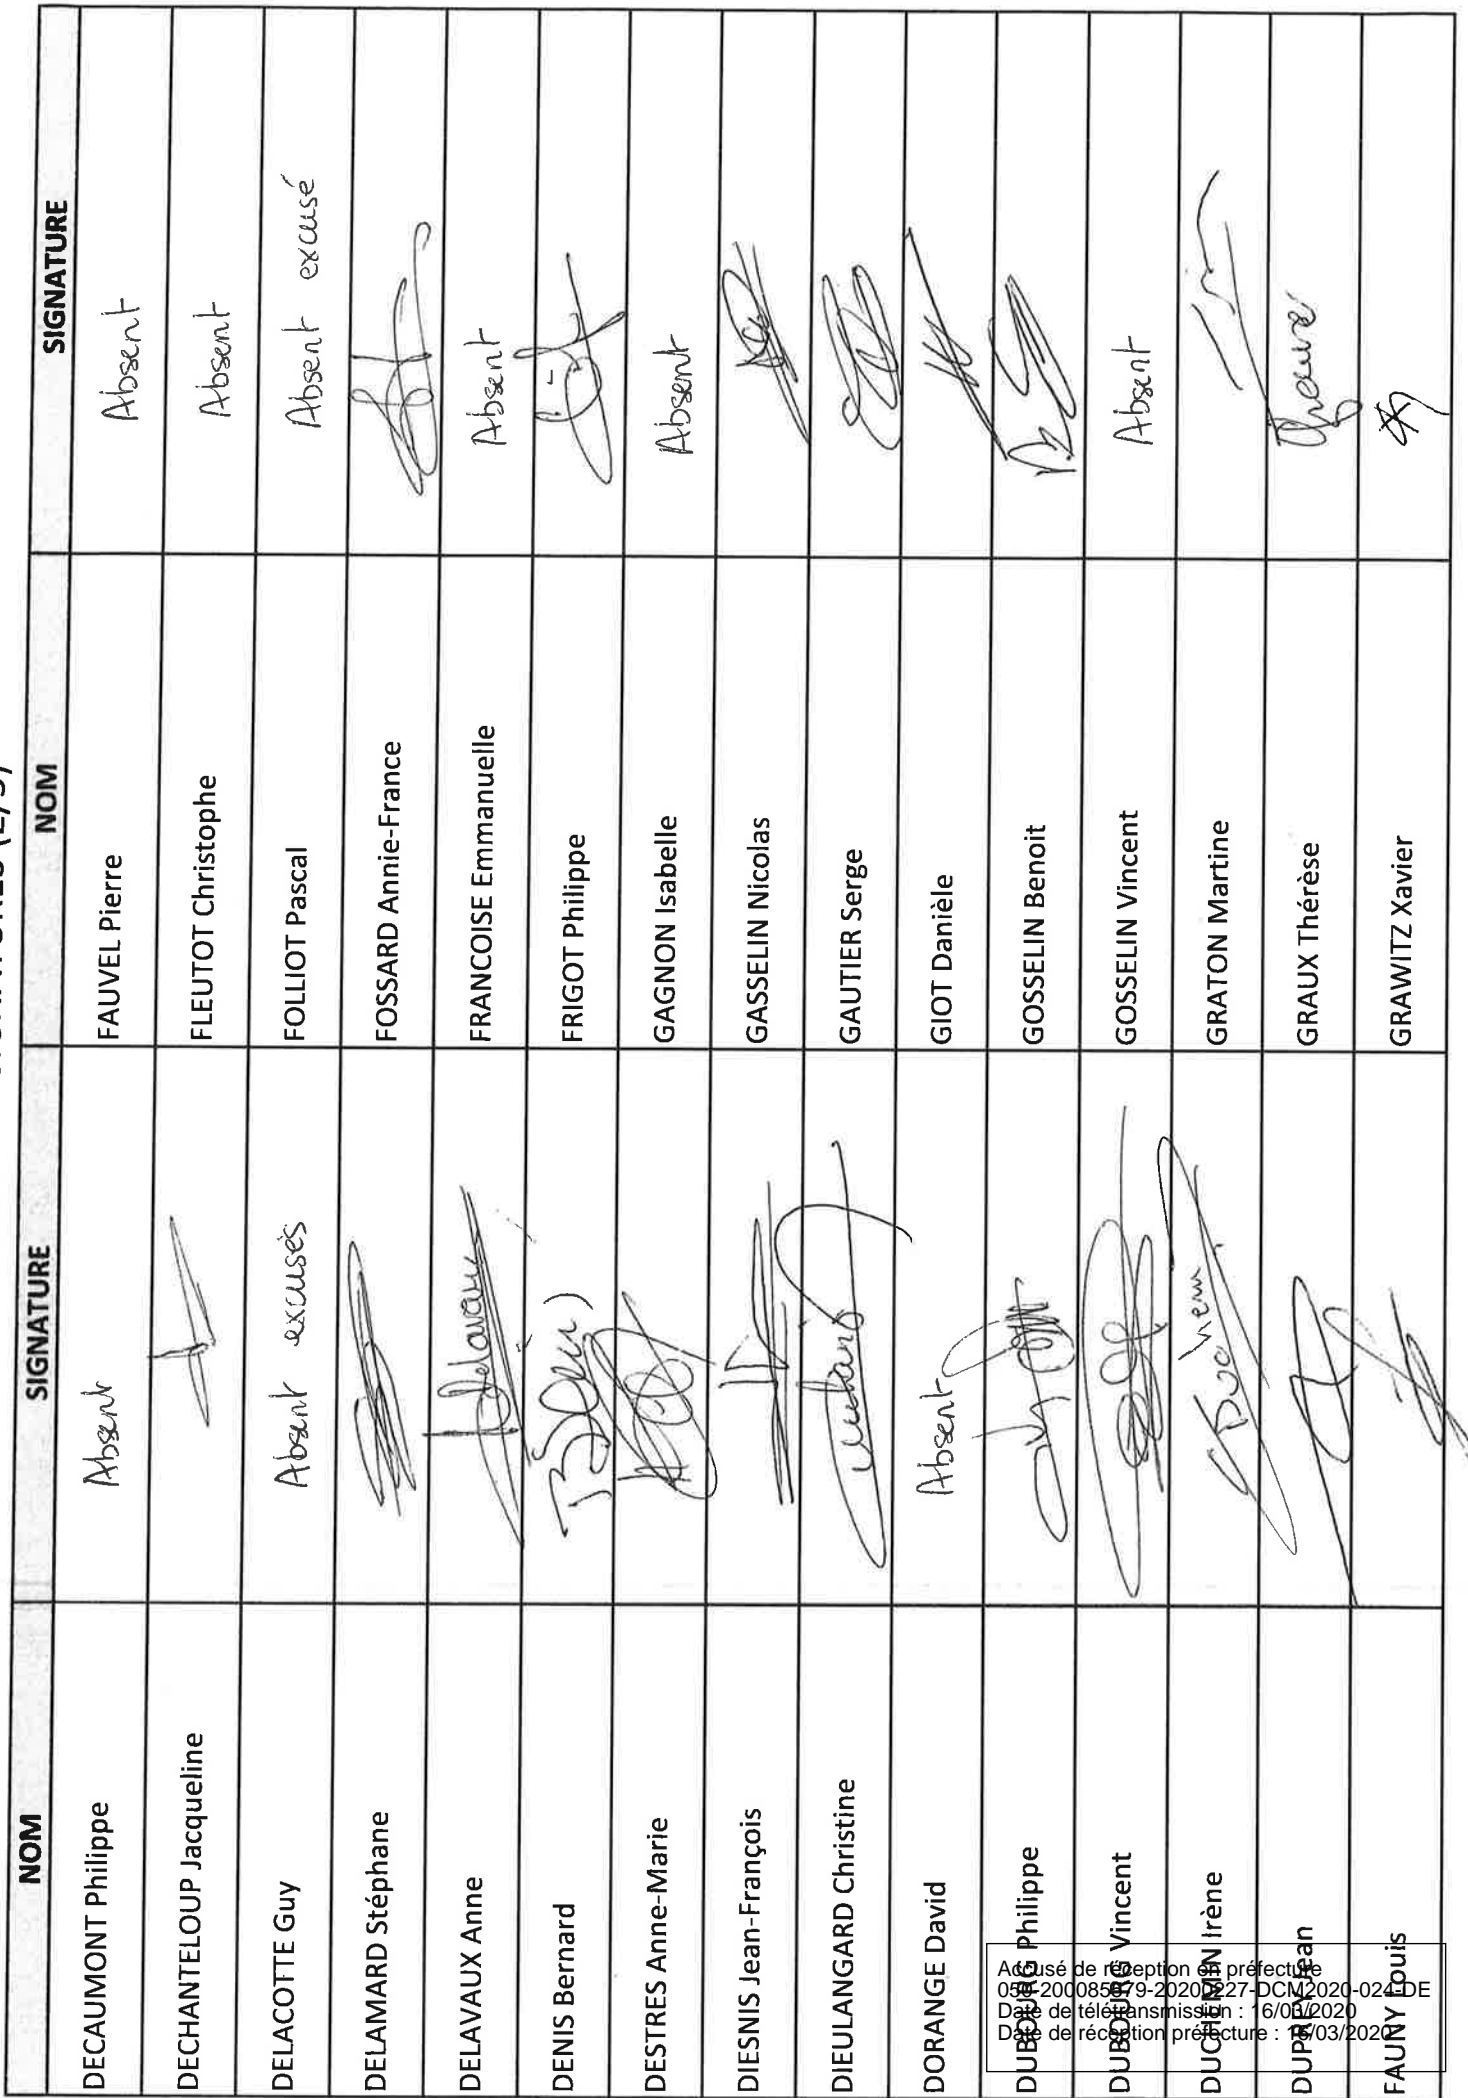 NOM SIGNATURE NOM SIGNATURE
DECAUMONT Philippe Absent FAUVEL Pierre Absent
DECHANTELOUP Jacqueline FLEUTOT Christophe Absent
DELACOTTE Guy Absent excusés FOLLIOT Pascal Absent excusé
DELAMARD Stéphane FOSSARD Annie-France
DELAVAUX Anne Delavaux FRANCOISE Emmanuelle Absent
DENIS Bernard FRIGOT Philippe
DESTRES Anne-Marie GAGNON Isabelle Absent
DIESNIS Jean-François GASSELIN Nicolas
DIEULANGARD Christine GAUTIER Serge
DORANGE David Absent GIOT Danièle
DUBOURG Philippe GOSSELIN Benoit
DUBOURG Vincent GOSSELIN Vincent Absent
DUCHEMIN Irène GRATON Martine
DUPREY Jean GRAUX Thérèse
FAUNY Louis GRAWITZ Xavier
Accusé de réception en préfecture
Date de télétransmission : 16/03/2020
Date de réception préfecture : 16/03/2020